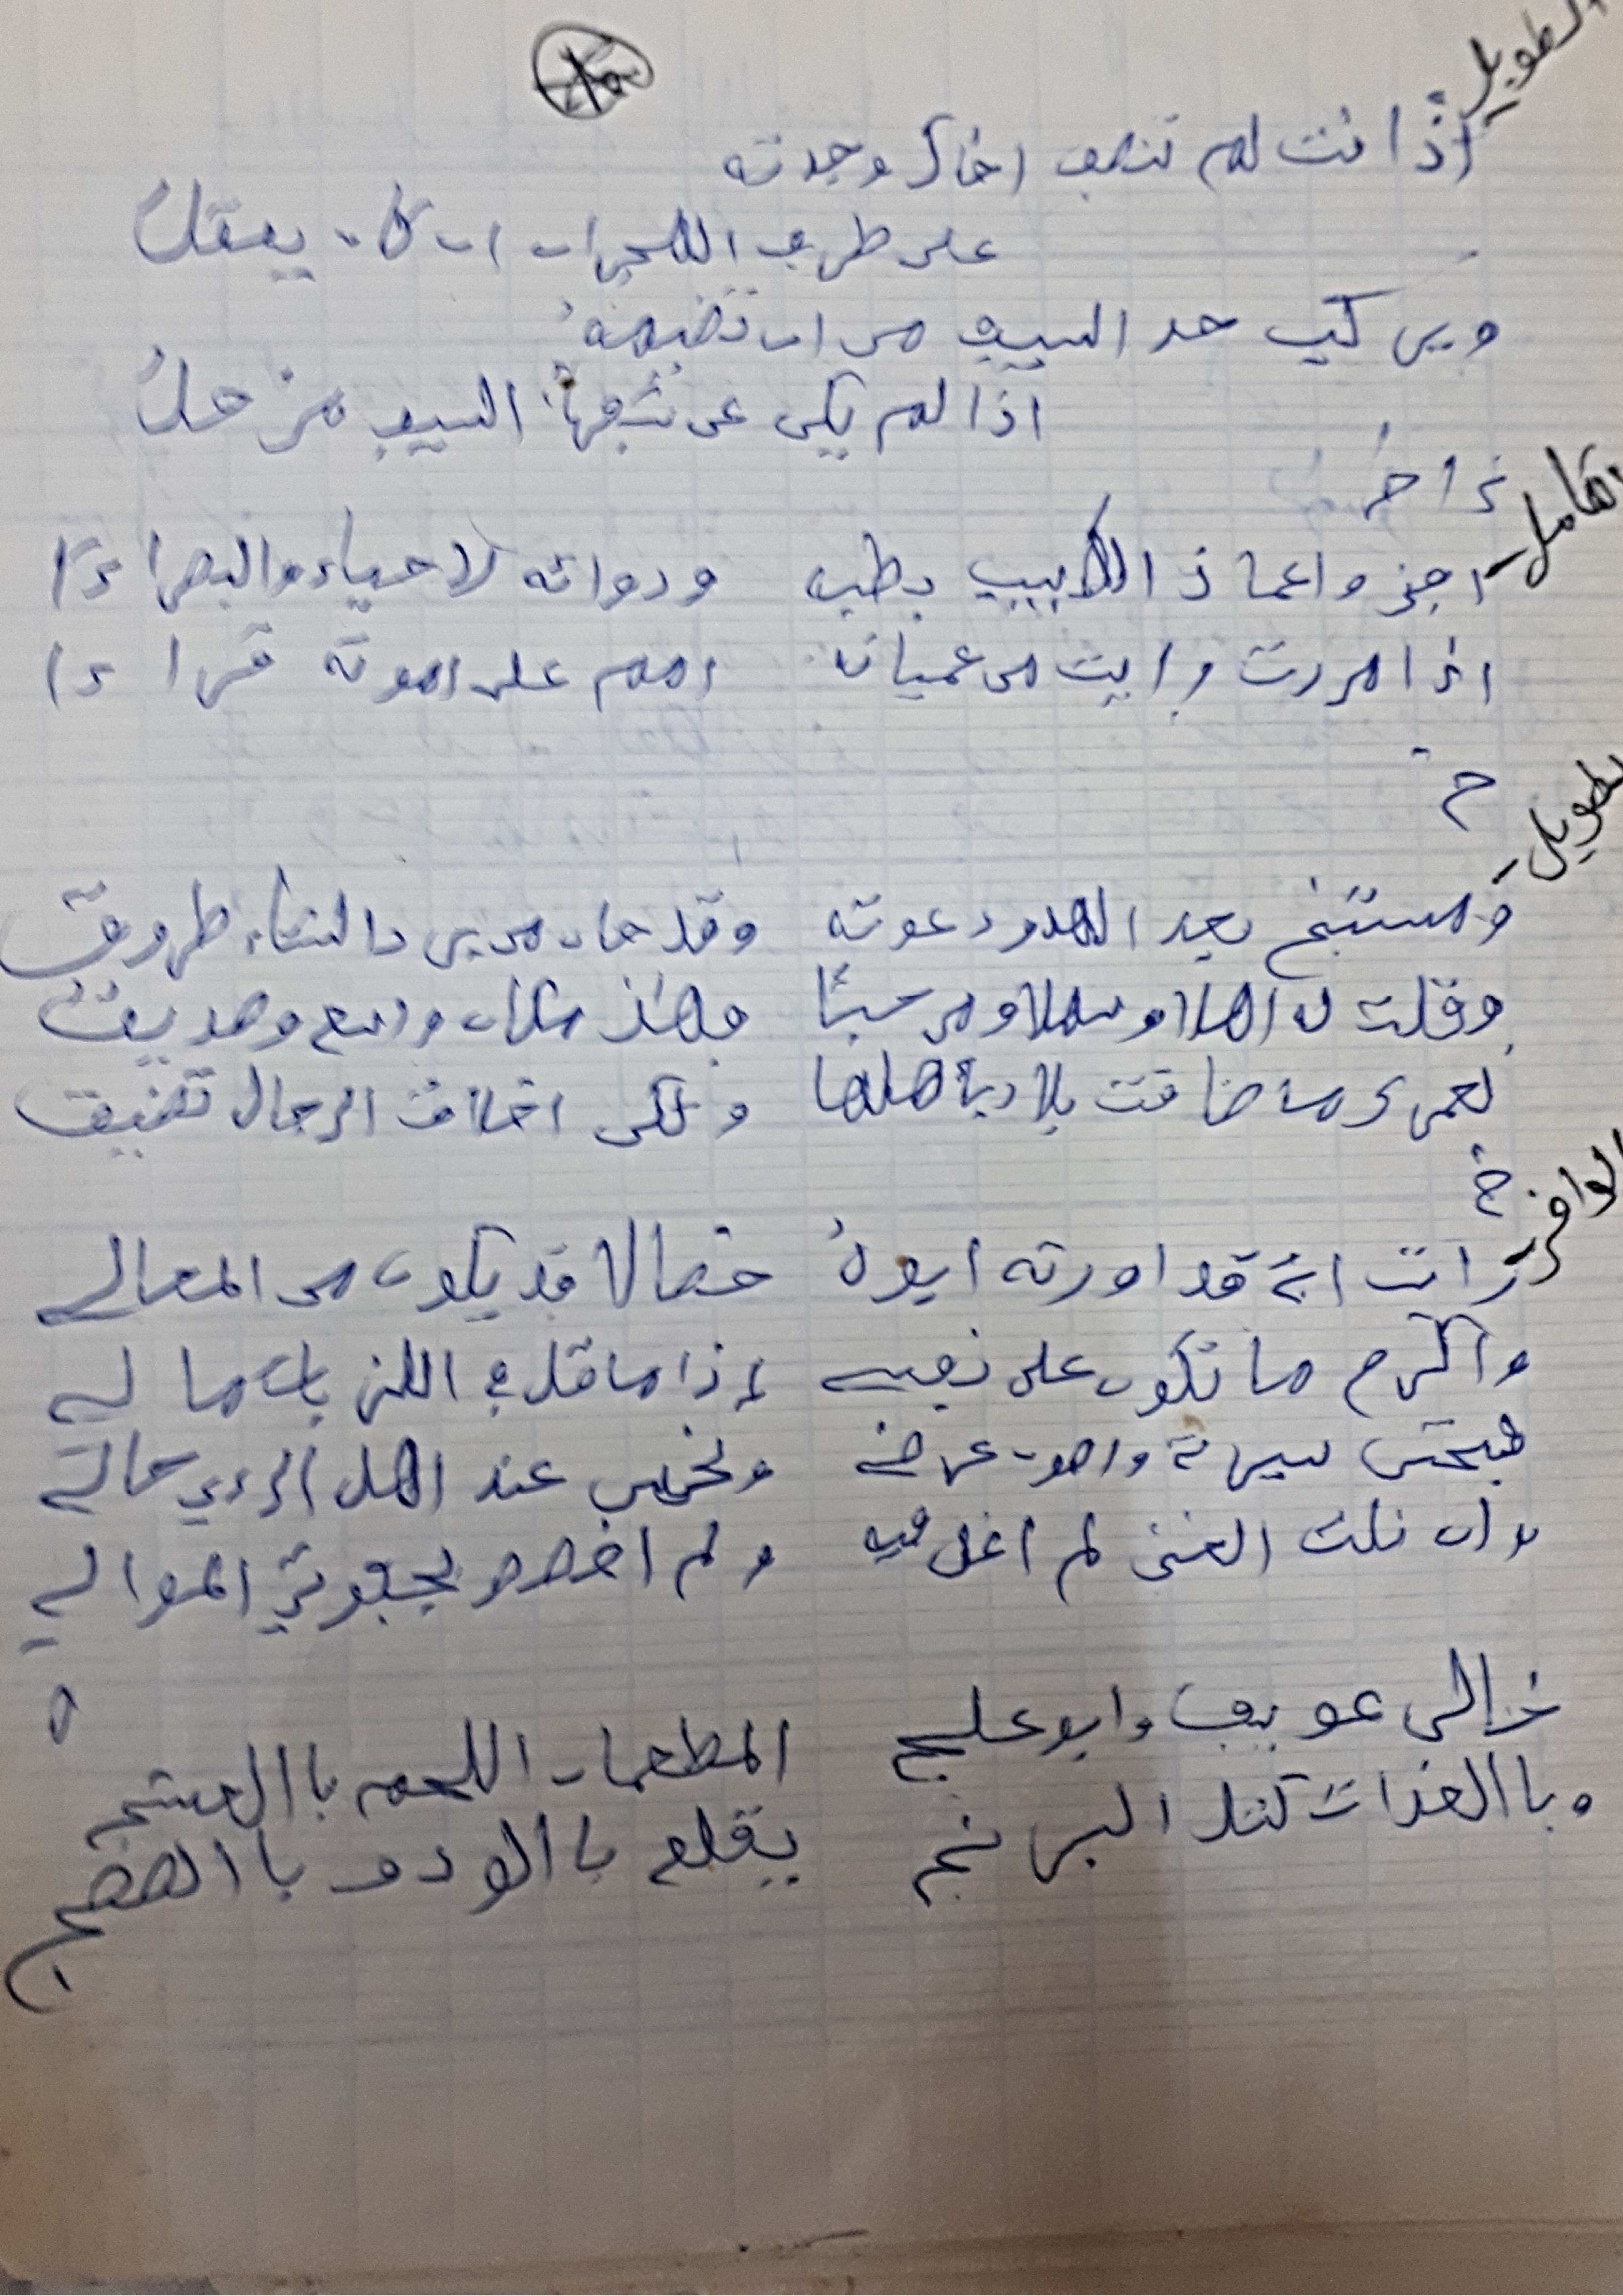 الطويل
اذا انت لم تنصف اخاك وجدته
على طرف الهجران ان كان يعقل
ويركب حد السيف من ان تضيمه
اذا لم يكن عن شفرة السيف مزحل
الكامل
اعمى واعما ذا الطبيب بطبه ودوائه الاحياء والبصراءا
اذا مررت رايت من عميانه امم على امواته قراءا
الطويل
ومستنبح بعد الهدو دعوته وقد حان من سرى الشتاء طروق
وقلت له اهلا وسهلا ومرحبا فهذا مكان واسع وصديق
لعمرى ما ضاقت بلاد باهلها ولكن اخلاق الرجال تضيق
الوافر
رات انى قد اورثه ابوه خصالا قد يكون من المعالي
واكرم ما تكون على نفسي اذا ما قل في اللزبات مالي
فتحسن سيرتي واصون عرضي وتحسن عند اهل الراي حالي
وان نلت الغنى لم اغل فيه ولم اخصص بجفوتي الموالي
خالى عويف وابو علج المطعمان اللحم باالعشج
وباالغداة كتل البرنج يقلع باالود وباالصيصج